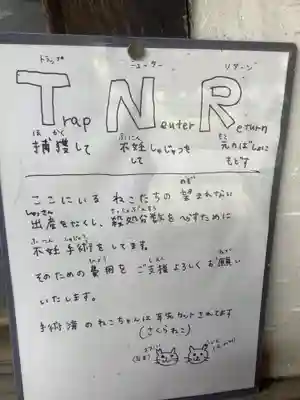 トラップ ニューター リターン
Trap Neuter Return
ほかく ふにん もと
捕獲して 不妊しゅじゅつを 元のばしょに
して もどす
のぞ
ここにいる ねこたちの 望まれない
しゅっさん さっしょぶんすう
出産をなくし、殺処分数をへらすために
ふにん しゅじゅつ
不妊手術をしてます。
ひよう しえん ねが
そのための費用をご支援よろしくお願い
いたします。
手術済のねこちゃんは耳先カットされてます
(さくらねこ)